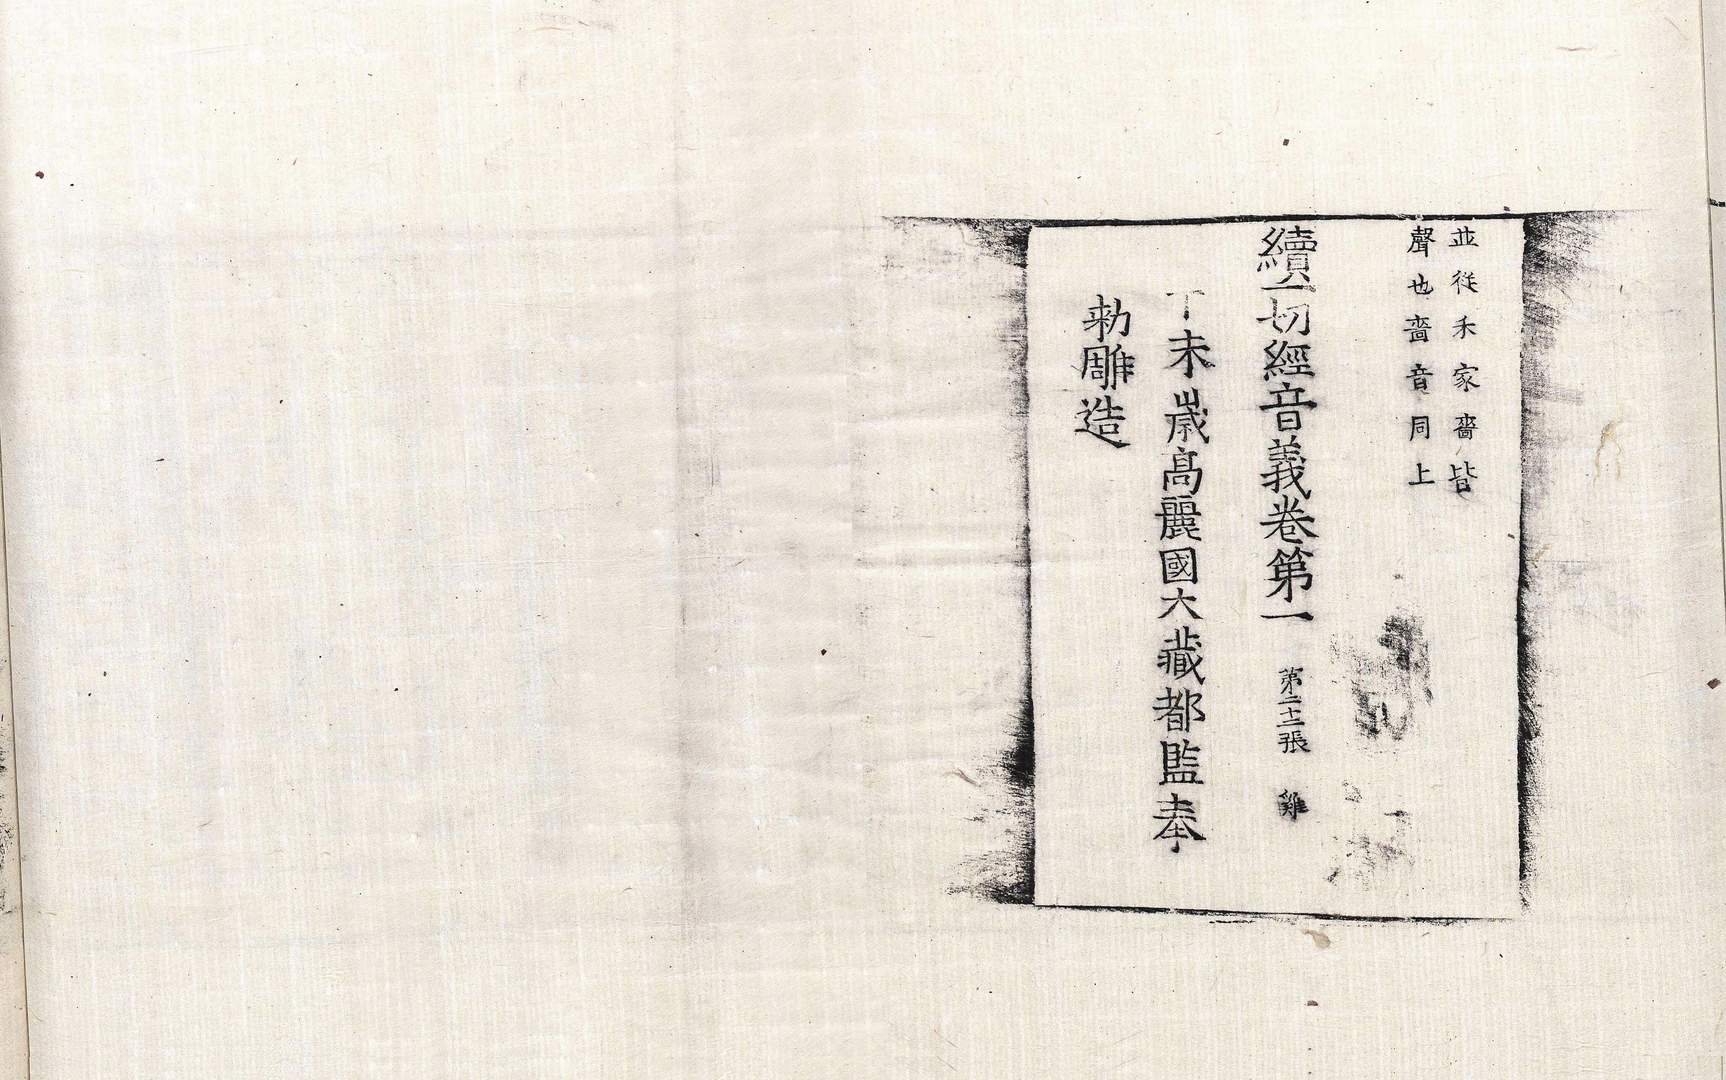 並從禾家嗇皆
聲也嗇音同上
續一切經音義卷第一
第二十二張 雞
丁未歲高麗國大藏都監奉
勑雕造